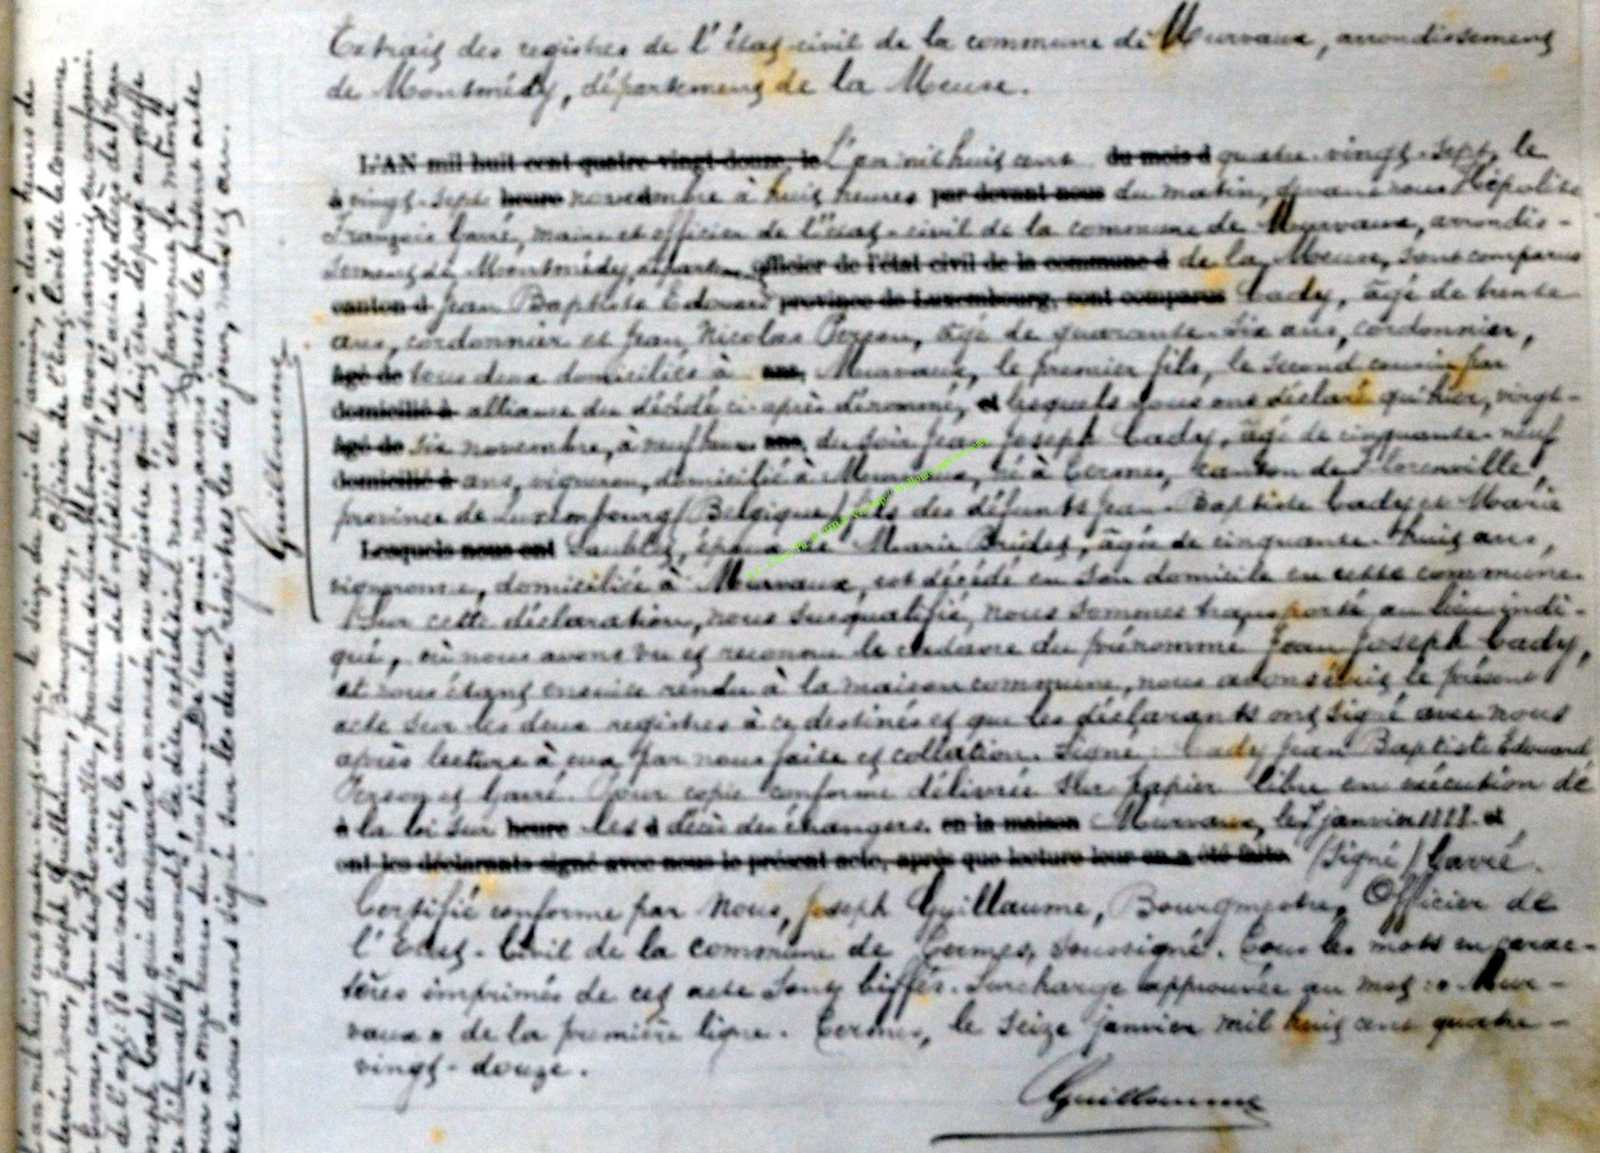 Extrait des registres de l'état-civil de la commune de Murvaux, arrondissement
de Montmédy, département de la Meuse.
L'AN mil huit cent quatre-vingt-douze, le l'an mil huit cent du mois d quatre-vingt-sept, le
à vingt-sept heure novembre à huit heures par devant nous du matin, devant nous Hépolite
François Gavré, maire et officier de l'état-civil de la commune de Murvaux, arrondis-
sement de Montmédy, départem officier de l'état civil de la commune d de la Meuse, sont comparus
canton d Jean Baptiste Edouard province de Luxembourg, sont comparus Cady, âgé de trente
ans, cordonnier et Jean Nicolas Person, âgé de quarante-six ans, cordonnier,
âgé de tous deux domiciliés à ans, Murvaux, le premier fils, le second cousin par
domicilié à alliance du décédé ci-après dénommé, et lesquels nous ont déclaré qu'hier, vingt-
âgé de six novembre, à neuf heures ans, du soir Jean Joseph Cady, âgé de cinquante-neuf
domicilié à ans, vigneron, domicilié à Murvaux, né à Termes, canton de Florenville,
province de Luxembourg (Belgique) fils des défunts Jean-Baptiste Cady et Marie
Lesquels nous ont époux de Marie Bridet, âgée de cinquante-huit ans,
vigneronne, domiciliée à Murvaux, est décédé en son domicile en cette commune.
Sur cette déclaration, nous susqualifié, nous sommes transporté au lieu indi-
qué, où nous avons vu et reconnu le cadavre du prénommé Jean Joseph Cady,
et nous étant ensuite rendu à la maison commune, nous avons écrit le présent
acte sur les deux registres à ce destinés et que les déclarants ont signé avec nous
après lecture à eux par nous faite et collation. Signé: Cady Jean Baptiste Edouard
Person et Gavré. Pour copie conforme délivrée sur papier libre en exécution de
à la loi sur heure les d décès des étrangers. en la maison Murvaux, le 7 janvier 1888. et
ont les déclarants signé avec nous le présent acte, après que lecture leur en a été faite. (Signé) Gavré.
Certifié conforme par Nous, Joseph Guillaume, Bourgmestre, Officier de
l'Etat-Civil de la commune de Termes, soussigné. Tous les mots en carac-
tères imprimés de cet acte sont biffés. Surcharge approuvée au mot: "Mur-
vaux" de la première ligne. Termes, le seize janvier mil huit cent quatre-
vingt-douze.
Guillaume
L'an mil huit cent quatre-vingt-douze, le seize du mois de janvier, à deux heures de
relevée, nous, Joseph Guillaume, Bourgmestre, Officier de l'Etat Civil de la commune
de Termes, canton de Florenville, province de Luxembourg, avons transcrit, en conformi-
té de l'art: 80 du code civil, le contenu de l'expédition de l'acte de décès de Jean
Joseph Cady qui demeure annexée au registre qui doit être déposé au greffe
du tribunal d'Arlon, la dite expédition nous étant parvenue le même
jour à onze heures du matin. De tout quoi nous avons dressé le présent acte
que nous avons signé sur les deux registres les dits jour, mois et an.
Guillaume